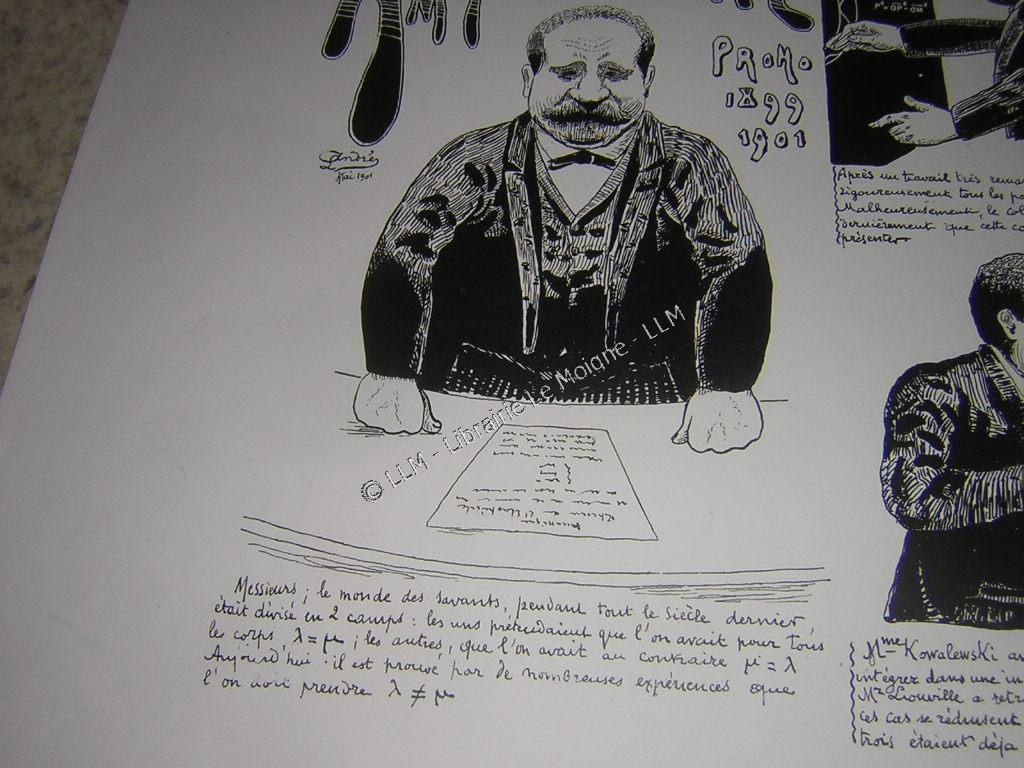 PROMO
1899
1901
André
Mai 1901
p² = OP² - OM²
Après un travail très
rigoureusement tous les
Malheureusement, le
dernièrement que cette
présenter
© LLM - Librairie Le Moigne - LLM
Mécanique
Théorie de l'Elasticité
Messieurs ; le monde des savants, pendant tout le siècle dernier,
était divisé en 2 camps : les uns prétendaient que l'on avait pour tous
les corps, λ = μ ; les autres, que l'on avait au contraire μ = λ
Aujourd'hui il est prouvé par de nombreuses expériences que
l'on doit prendre λ ≠ μ
Mme Kowalewski
intégrer dans une
Mr Liouville a
ces cas se réduisent
trois étaient déjà